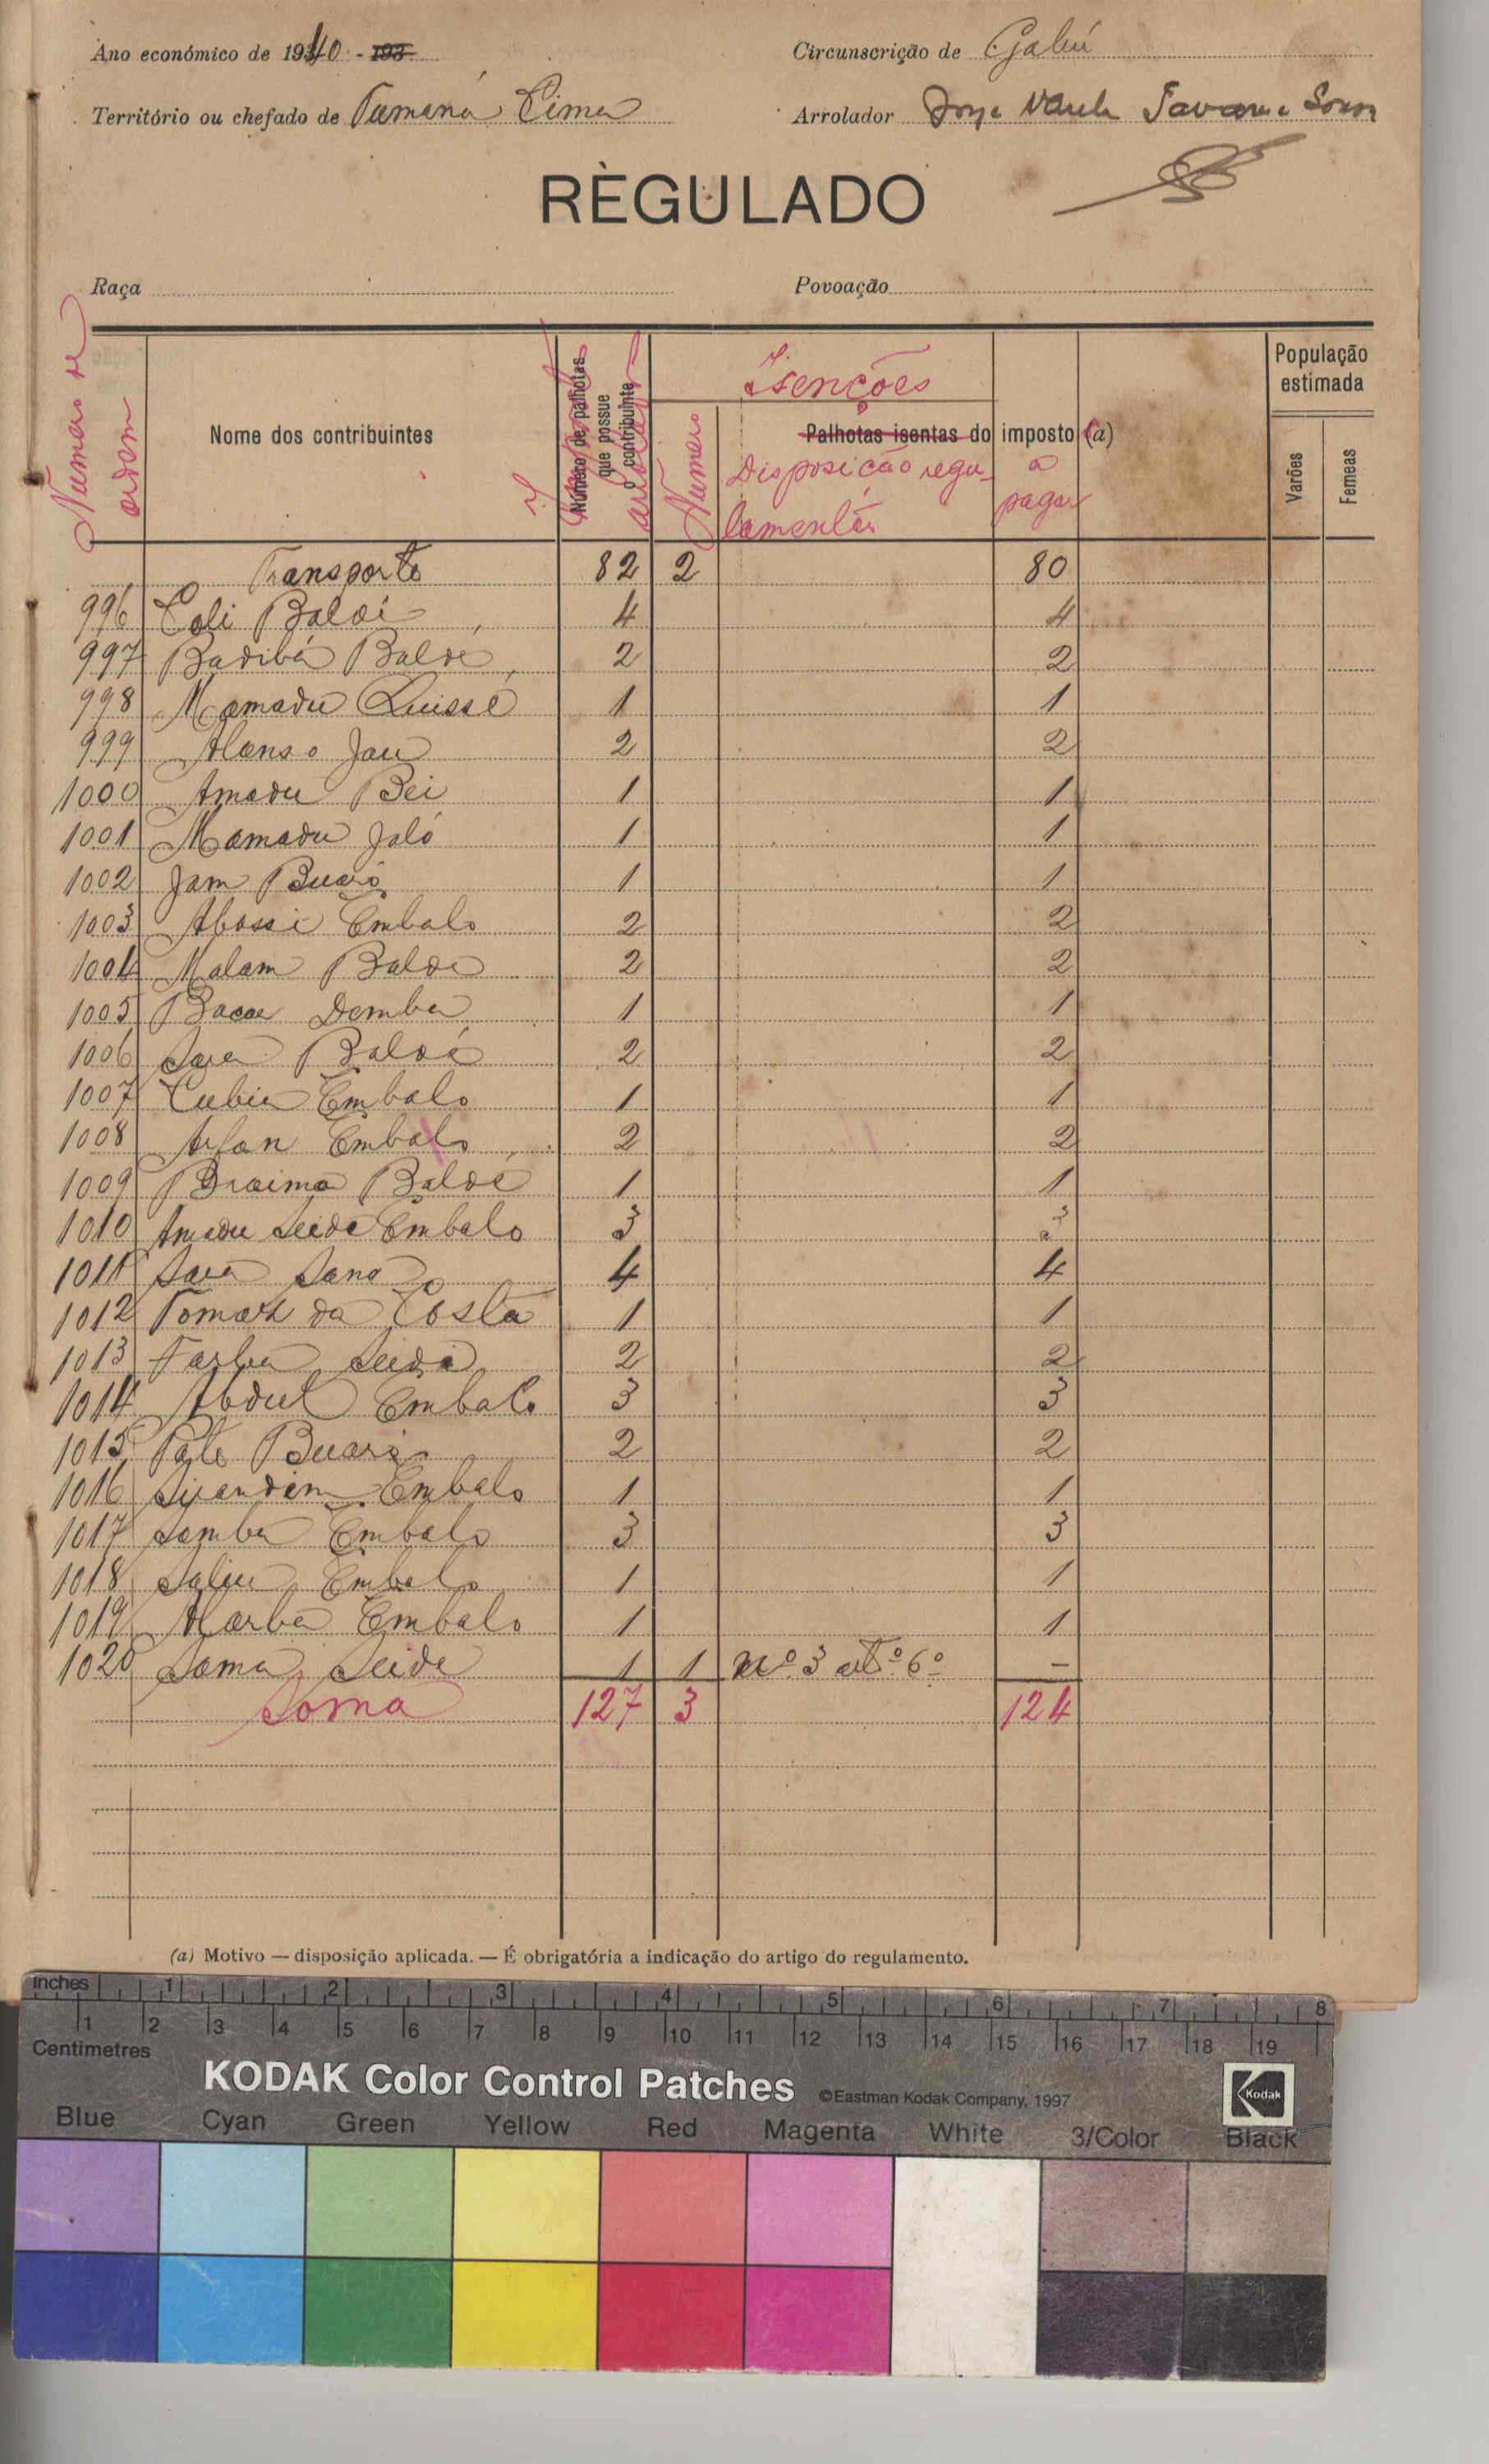 Ano económico de 1940 - 193
Circunscrição de Gabú
Território ou chefado de Tumaná Cima
Arrolador Tavares
RÈGULADO
Raça
Povoação
Numero de ordem
Nome dos contribuintes
Número de palhotas que possue o contribuinte
Isenções
Numero
Palhotas isentas do imposto (a)
Disposição regulamentar
a pagar
População estimada
Varões
Femeas
Transporte 82 2 80
996 Coli Baldé 4 4
997 Badibá Baldé 2 2
998 Mamadu Quissé 1 1
999 Alanso Jau 2 2
1000 Amadu Bei 1 1
1001 Mamadu Jaló 1 1
1002 Jam Buaró 1 1
1003 Abassi Embalo 2 2
1004 Malam Balde 2 2
1005 Bacar Demba 1 1
1006 Baldé 2 2
1007 Embalo 1 1
1008 Embalo 2 2
1009 Braima Baldé 1 1
1010 Amadu Seide Embalo 3 3
1011 Sana 4 4
1012 Tomaz da Costa 1 1
1013 Seide 2 2
1014 Abdul Embalo 3 3
1015 Paté Buaró 2 2
1016 Embalo 1 1
1017 Samba Embalo 3 3
1018 Saliu Embalo 1 1
1019 Embalo 1 1
1020 Seide 1 1 nº 3 artº 6º —
Soma 127 3 124
(a) Motivo — disposição aplicada. — É obrigatória a indicação do artigo do regulamento.
inches 1 2 3 4 5 6 7 8
1 2 3 4 5 6 7 8 9 10 11 12 13 14 15 16 17 18 19
Centimetres
KODAK Color Control Patches ©Eastman Kodak Company, 1997 Kodak
Blue Cyan Green Yellow Red Magenta White 3/Color Black